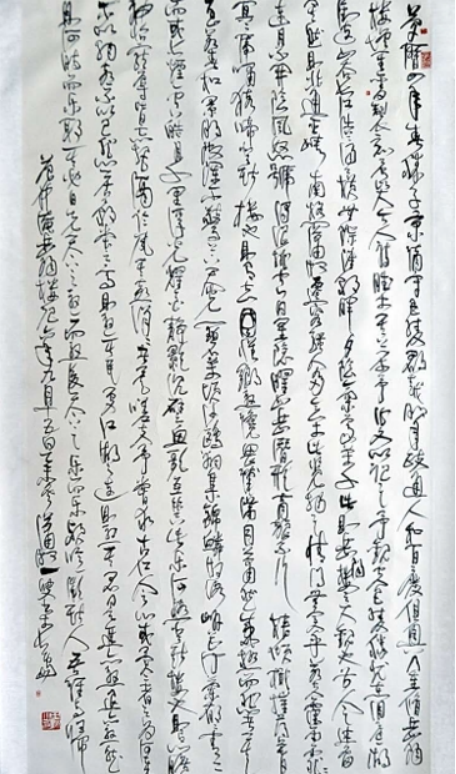 慶曆四年春滕子京謫守巴陵郡越明年政通人和百廢俱興乃重修岳陽
樓增其舊制刻唐賢今人詩賦於其上屬予作文以記之予觀夫巴陵勝狀在洞庭一湖
銜遠山吞長江浩浩湯湯橫無際涯朝暉夕陰氣象萬千此則岳陽樓之大觀也前人之述備
矣然則北通巫峽南極瀟湘遷客騷人多會於此覽物之情得無異乎若夫霪雨霏霏
連月不開陰風怒號濁浪排空日星隱曜山岳潛形商旅不行檣傾楫摧薄暮冥
冥虎嘯猿啼登斯樓也則有去國懷鄉憂讒畏譏滿目蕭然感極而悲者矣
至若春和景明波瀾不驚上下天光一碧萬頃沙鷗翔集錦鱗游泳岸芷汀蘭郁郁青青
而或長煙一空皓月千里浮光耀金靜影沉璧漁歌互答此樂何極登斯樓也則有心曠
神怡寵辱皆忘把酒臨風其喜洋洋者矣嗟夫予嘗求古仁人之心或異二者之為何哉
不以物喜不以己悲居廟堂之高則憂其民處江湖之遠則憂其君是進亦憂退亦憂然
則何時而樂耶其必曰先天下之憂而憂後天下之樂而樂歟噫微斯人吾誰與歸
范仲淹岳陽樓記